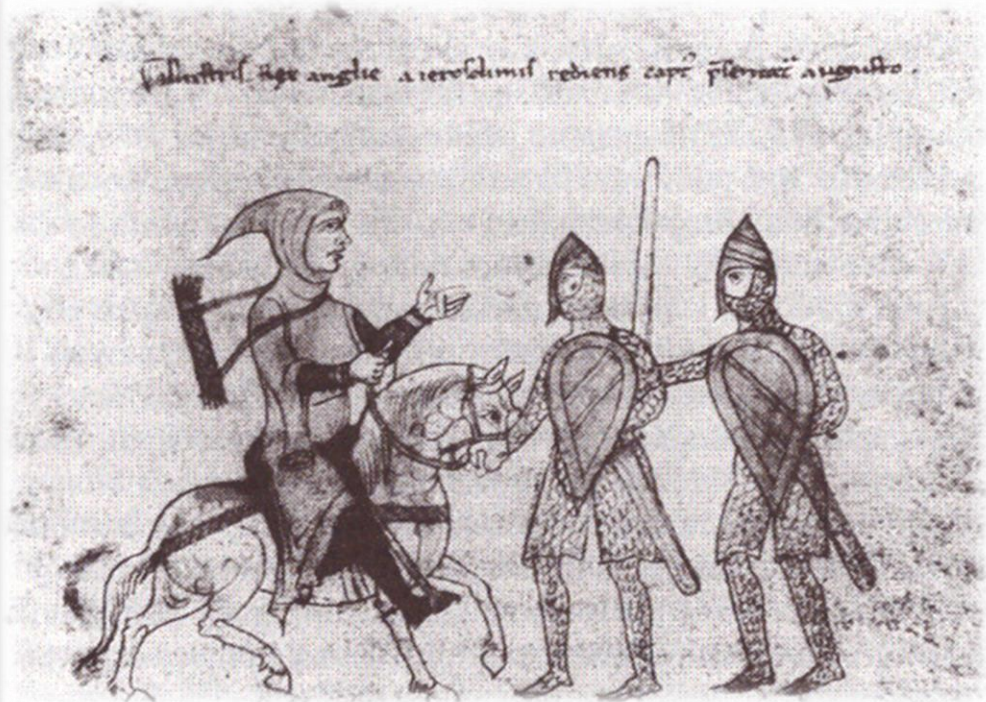 illustris rex anglie a ierosolimis rediens capt̾ p̄sentat̾ augusto.